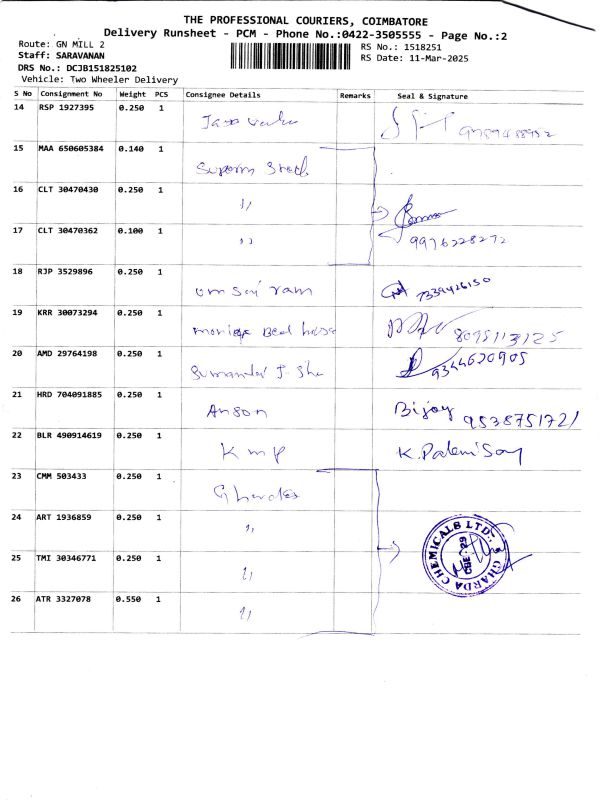 THE PROFESSIONAL COURIERS, COIMBATORE
Delivery Runsheet - PCM - Phone No.:0422-3505555 - Page No.:2
Route: GN MILL 2
Staff: SARAVANAN
DRS No.: DCJB151825102
Vehicle: Two Wheeler Delivery
RS No.: 1518251
RS Date: 11-Mar-2025
S No Consignment No Weight PCS Consignee Details Remarks Seal & Signature
14 RSP 1927395 0.250 1
15 MAA 650605384 0.140 1
16 CLT 30470430 0.250 1 〃
17 CLT 30470362 0.100 1 〃
9976228272
18 RJP 3529896 0.250 1 om sai ram 7339426150
19 KRR 30073294 0.250 1 8095113125
20 AMD 29764198 0.250 1 9344620905
21 HRD 704091885 0.250 1 Anson Bijoy 9538751721
22 BLR 490914619 0.250 1 K m p K. PalaniSamy
23 CMM 503433 0.250 1
24 ART 1936859 0.250 1 〃
25 TMI 30346771 0.250 1 〃
26 ATR 3327078 0.550 1 〃
GHARDA CHEMICALS LTD.
CBE-29